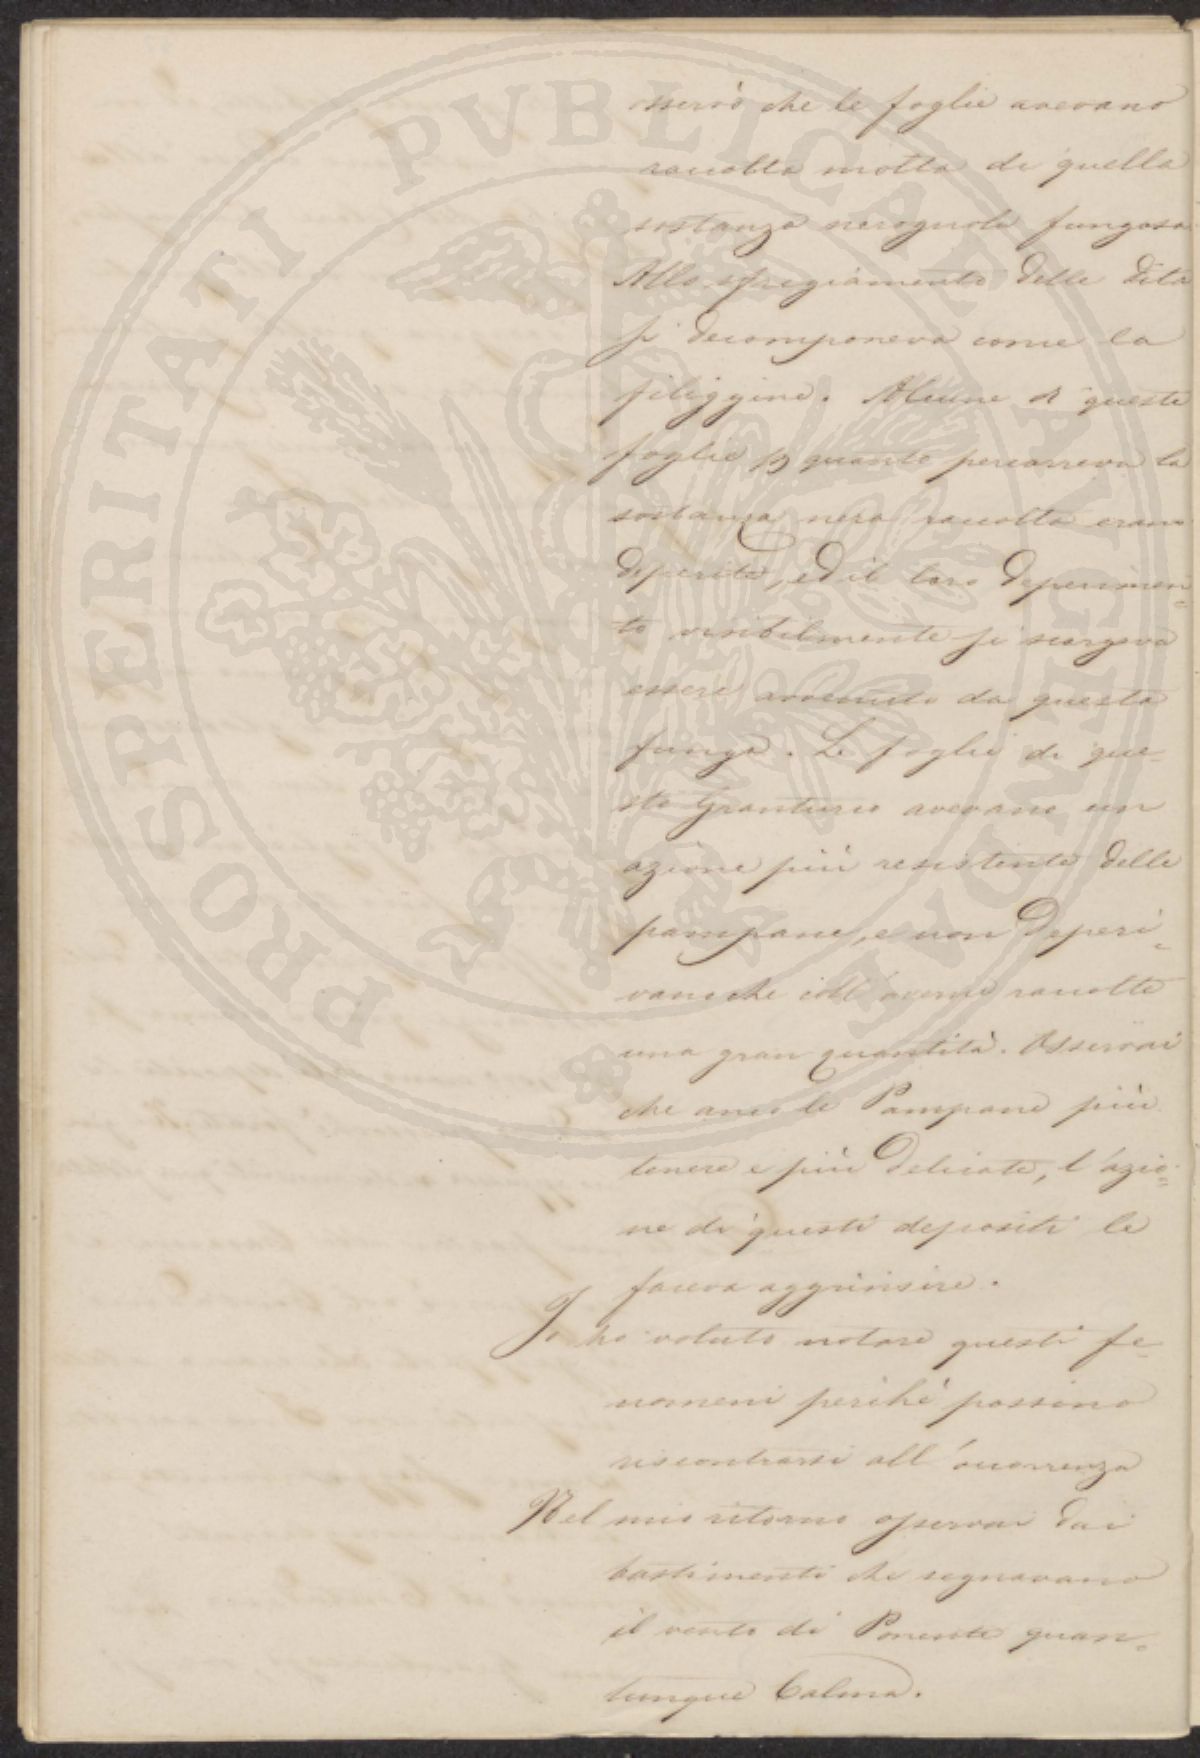 osservò che le foglie avevano
raccolta molta di quella
sostanza nerognola fungosa
Allo sfregiamento delle dita
si decomponeva come la
filiggine. Alcune di queste
foglie p quanto percorreva la
sostanza nera raccolta erano
deperite, ed il loro deperimen=
to visibilmente si scorgeva
essere avvenuto da questo
fungo. Le foglie di que=
sto Granturco avevano un
azione più resistente delle
pampane, e non deperi=
vano che coll'averne raccolte
una gran quantità. Osservai
che anco le Pampane più
tenere e più delicate, l'azio=
ne di questi depositi le
faceva aggrinsire.
Io ho voluto notare questi fe=
nomeni perchè possino
riscontrarsi all'occorrenza
Nel mio ritorno osservai dai
bastimenti che segnavano
il vento di Ponente quan=
tunque Calma.
PROSPERITATI PVBLICAE AVGENDAE